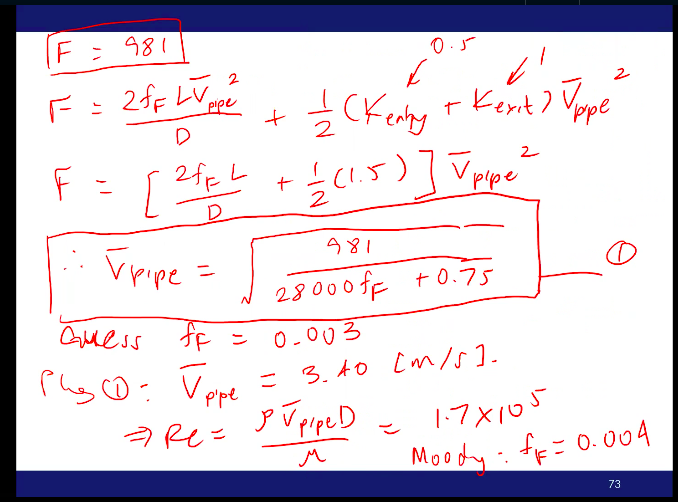 F = 981
F = 2f_F L V̄_pipe² / D + 1/2 (K_entry + K_exit) V̄_pipe²
0.5
1
F = [ 2f_F L / D + 1/2 (1.5) ] V̄_pipe²
∴ V̄_pipe = √( 981 / (28000 f_F + 0.75) )
①
Guess f_F = 0.003
Plug ① : V̄_pipe = 3.40 [m/s].
⇒ Re = ρ V̄_pipe D / μ = 1.7 × 10⁵
Moody : f_F = 0.004
73